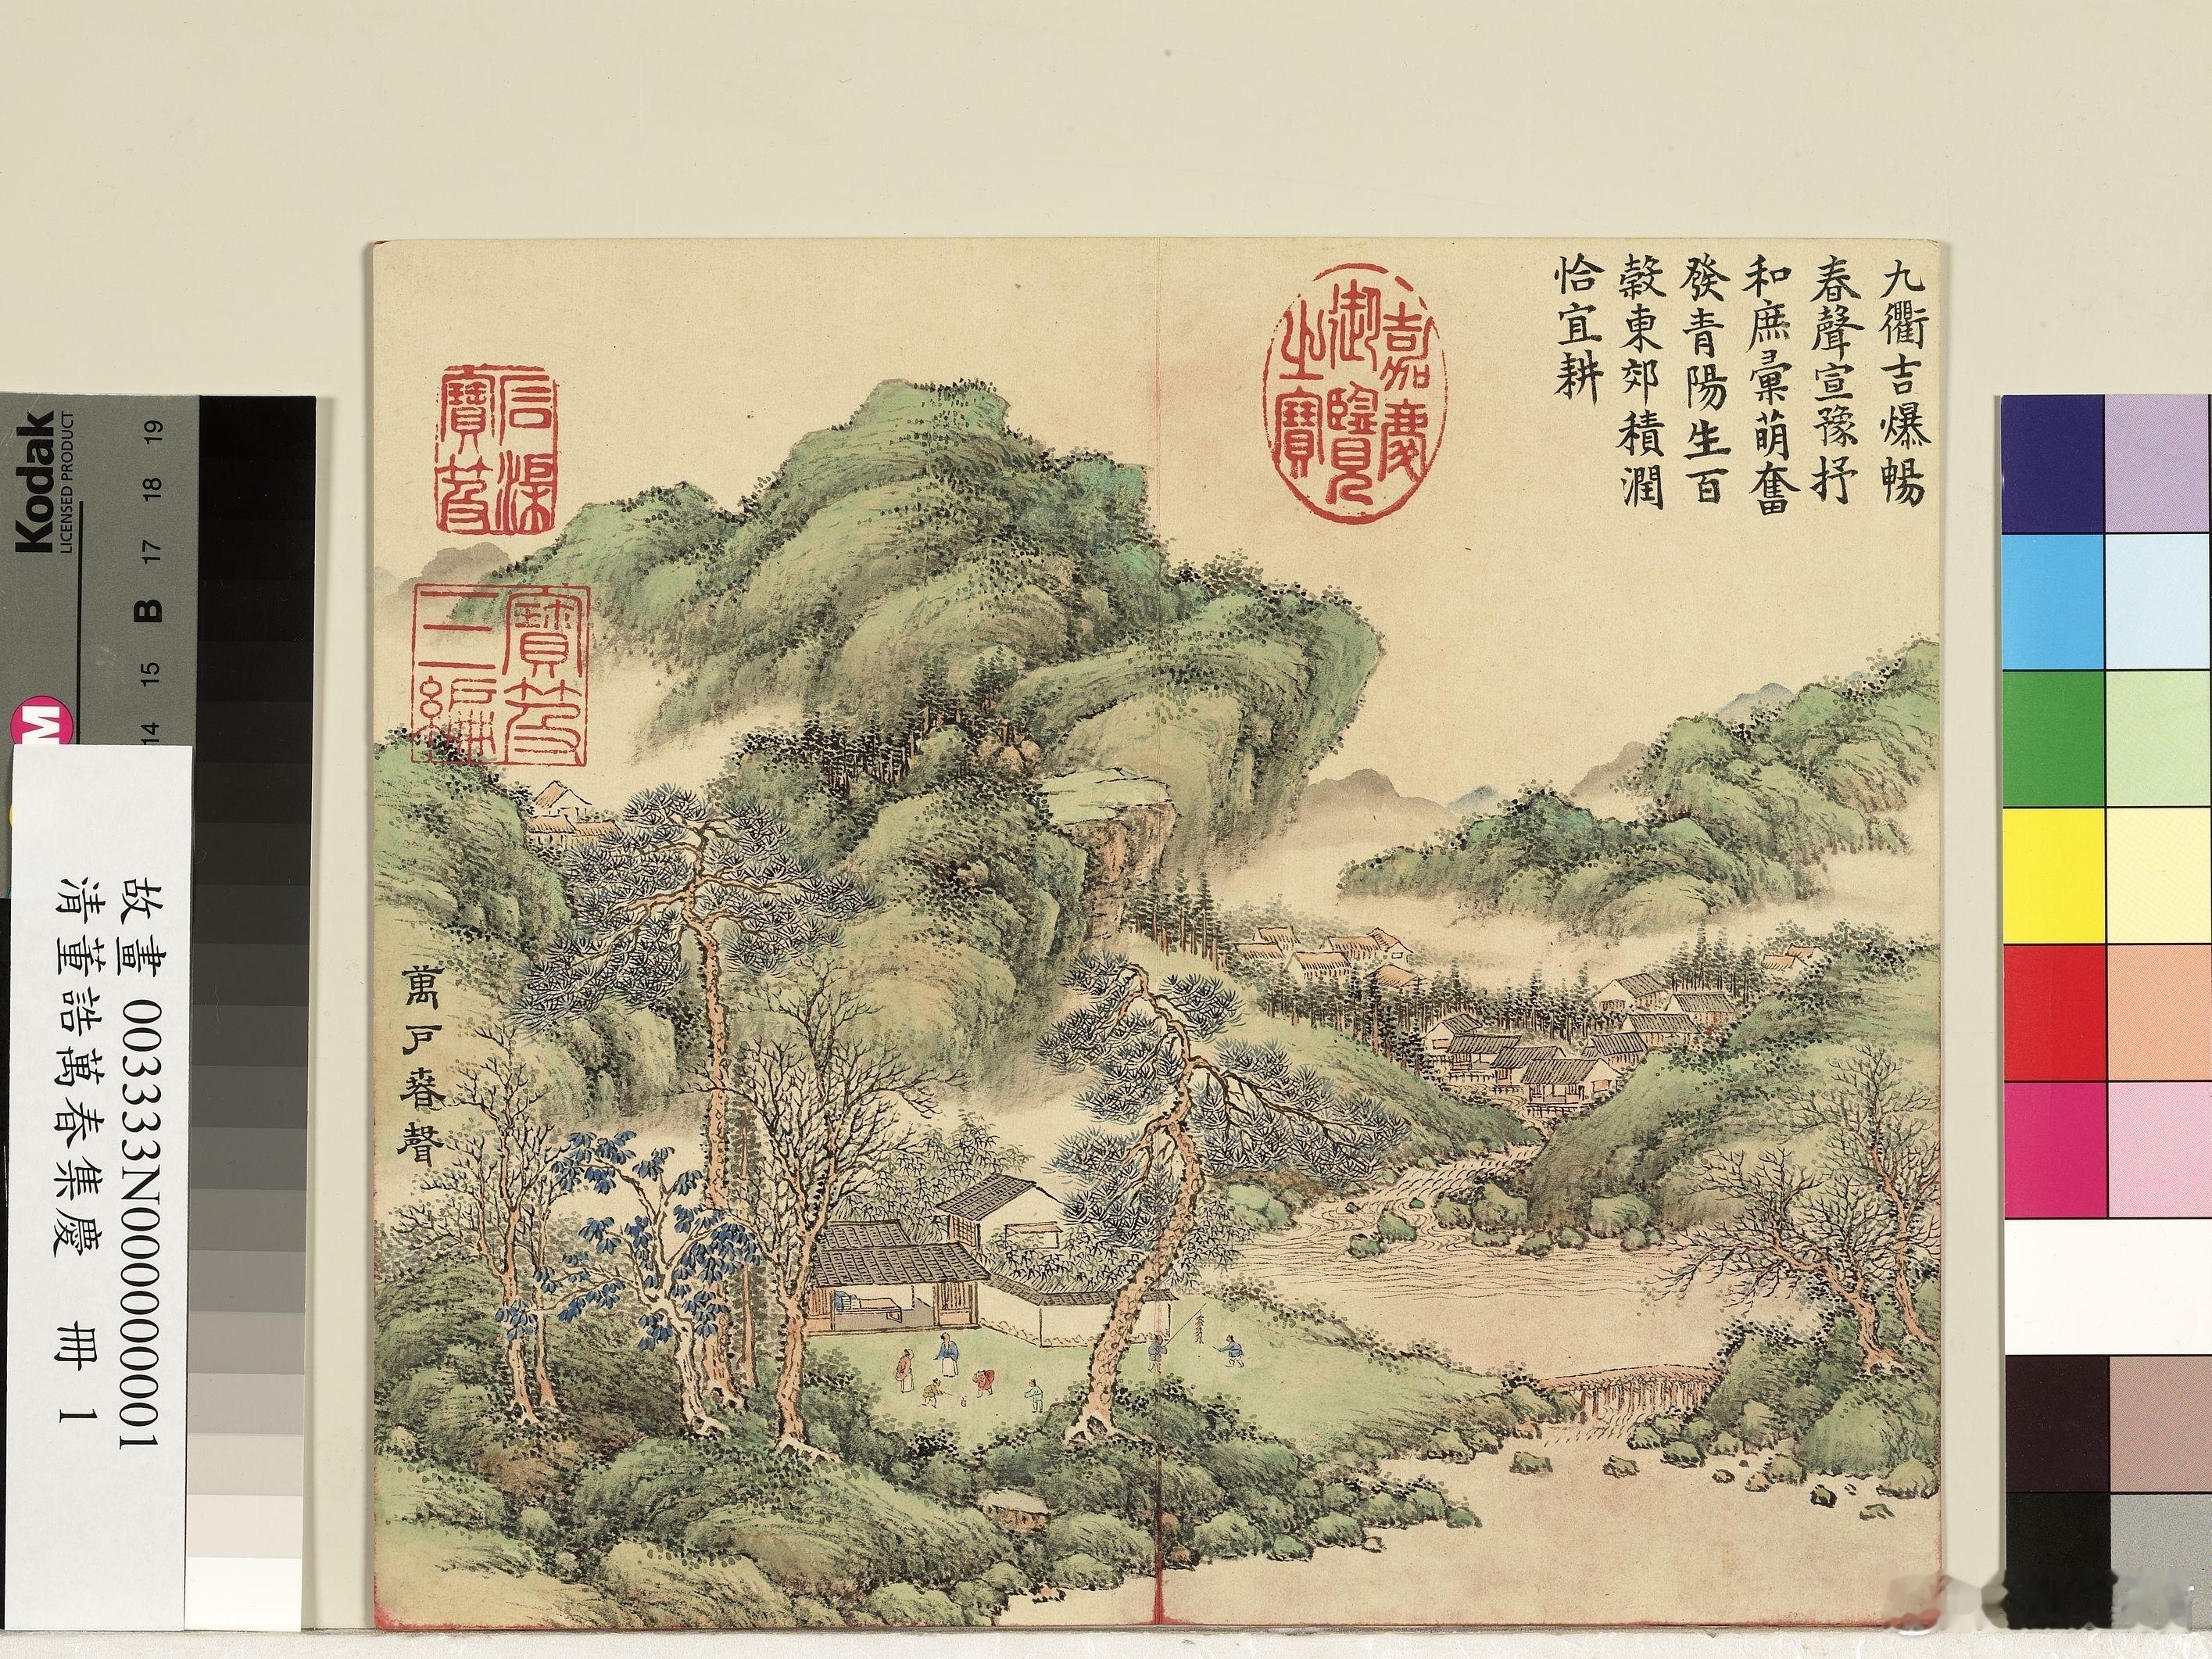 九衢吉爆暢
春聲宣豫抒
和庶彙萌奮
發青陽生百
穀東郊積潤
恰宜耕
嘉慶
御覽
之寶
寶笈
三編
萬戶春聲
故畫 003333N000000001
清董誥萬春集慶 冊 1
Kodak
LICENSED PRODUCT
19
18
17
B
15
14
M